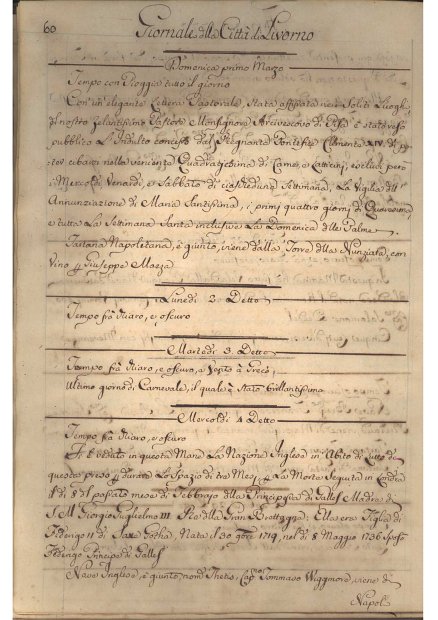 60
Giornale della Città di Livorno
Domenica primo Marzo
Tempo con Pioggia tutto il giorno
Con un' elegante Lettera Pastorale, stata affissata nei Soliti Luoghi,
di nostro Zelantissimo Pastore Monsignore Arcivescovo di Pisa è stato reso
pubblico L'Indulto concesso dal Regnante Pontefice Clemente XIV. di po-
ter cibarsi nella vicina Quadragesima di Carne, e Latticinj, esclusi però
i Mercoldì, Venardì, e Sabbato di ciascheduna Settimana, La Vigilia dell'
Annunziazione di Maria Santissima, i primi quattro giorni di Quaresima,
e tutta La Settimana Santa inclusive La Domenica delle Palme
Tartana Napoletana, è giunto, viene dalla Torre della Nunziata, con
Vino p Giuseppe Mazza
Lunedì 2. Detto
Tempo frà chiaro, e oscuro
Martedì 3. Detto
Tempo frà chiaro, e oscuro, e Vento à Greco
Ultimo giorno di Carnevale, il quale è Stato brillantissimo
Mercoldì 4 Detto
Tempo frà chiaro, e oscuro
Si è veduto in questa Mane La Nazione Inglese in Abito di Lutto di
questa preso p durare Lo Spazio di tre Mesi p La Morte Seguita in Londra
il dì 8 del passato mese di Febbrajo della Principessa di Galles Madre di
S. M. Giorgio Guglielmo III Rè della Gran Brettagna: Ella era Figlia di
Federigo II di Saxe Gotha, Nata il 30 9bre 1719, nel dì 8 Maggio 1736 Sposò
Federigo Principe di Galles
Nave Inglese, è giunto, nom. Thetis, Capno Tommaso Wiggmore, viene di
Napoli